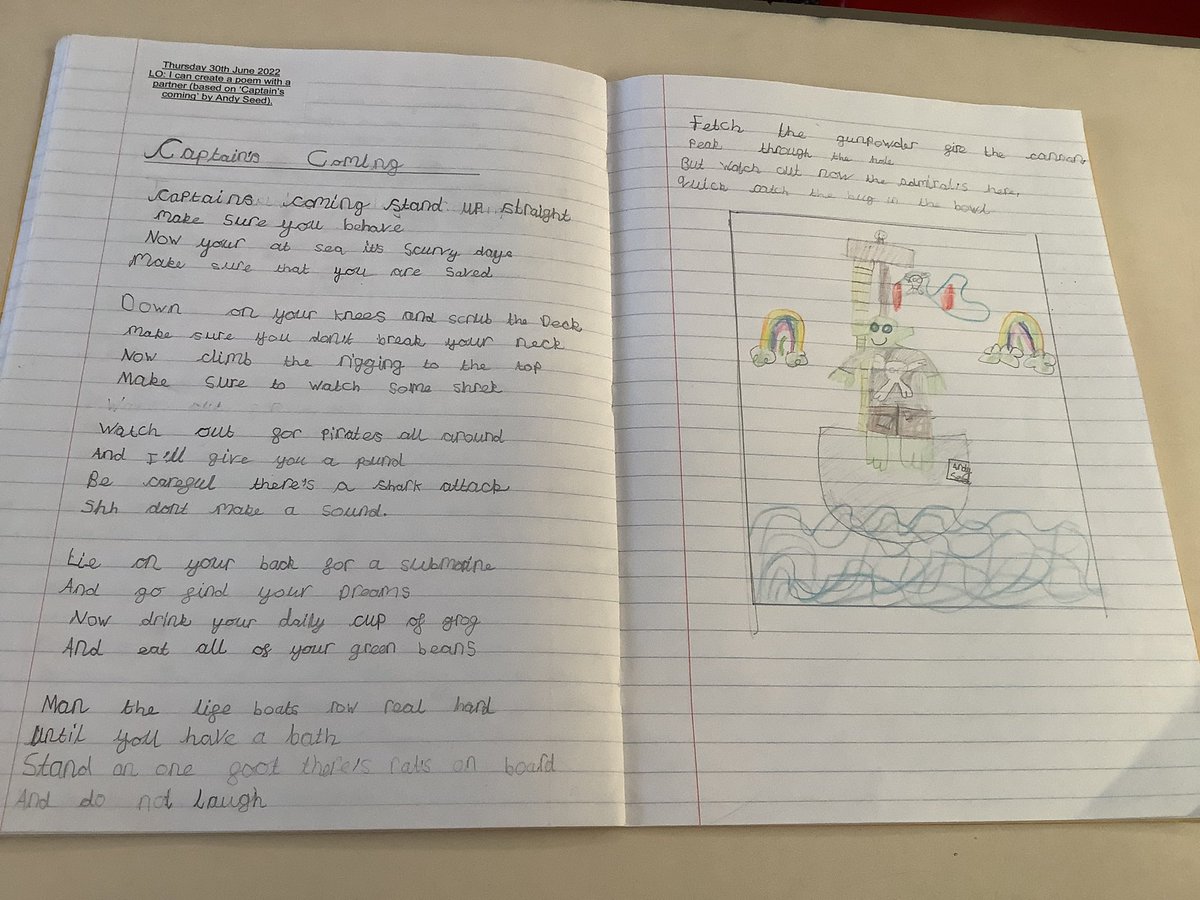 Thursday 30th June 2022
LO: I can create a poem with a
partner (based on 'Captain's
coming' by Andy Seed).
Captain's Coming
Captains coming stand up straight
Make sure you behave
Now your at sea its scurvy days
Make sure that you are saved
Down on your knees and scrub the Deck
Make sure you don't break your neck
Now climb the rigging to the top
Make sure to watch some shrek
Watch out for pirates all around
And I'll give you a pound
Be careful there's a shark attack
Shh dont make a sound.
Lie on your back for a submarine
And go find your Dreams
Now drink your daily cup of grog
And eat all of your green beans
Man the life boats row real hard
until you have a bath
Stand on one foot there's rats on board
And do not laugh
Fetch the gunpowder fire the cannon,
Peak through the hole
But watch out now the admiral's here,
Quick catch the bug in the bowl
Andy
Seed